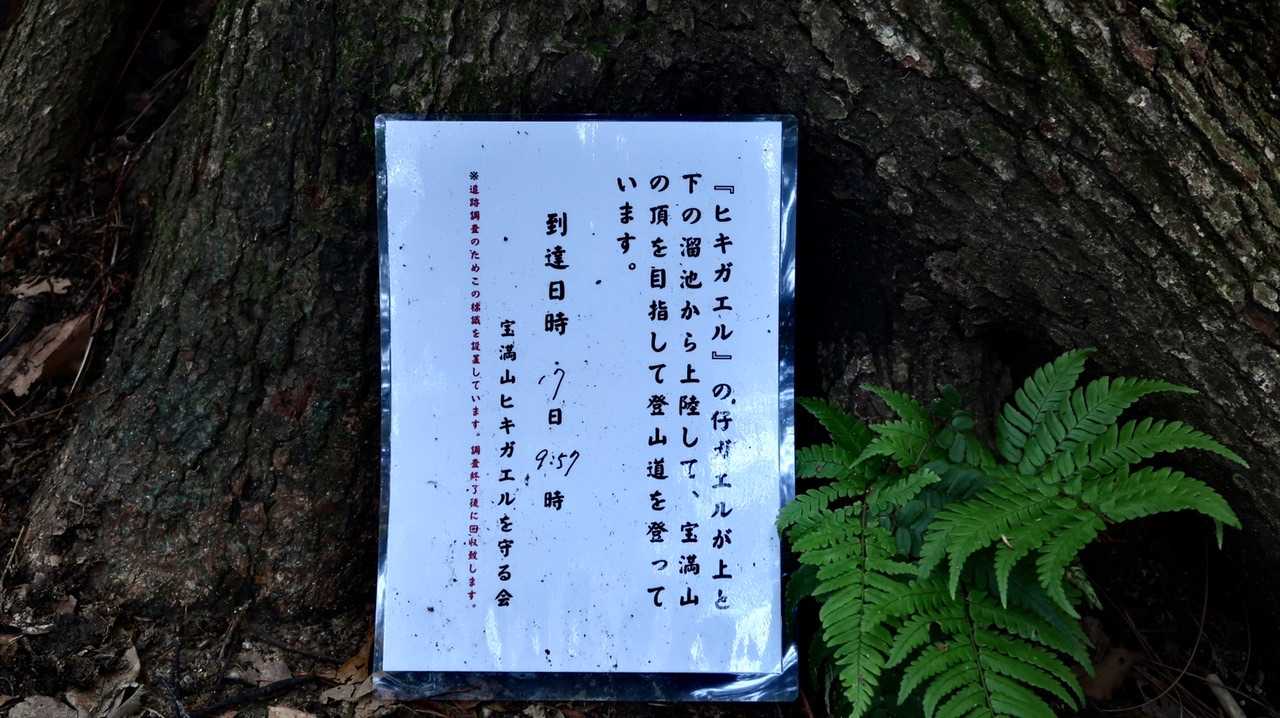 『ヒキガエル』の仔ガエルが上と
下の溜池から上陸して、宝満山
の頂を目指して登山道を登って
います。
到達日時 17日 9:57時
宝満山ヒキガエルを守る会
※追跡調査のためこの標識を設置しています。調査終了後に回収致します。